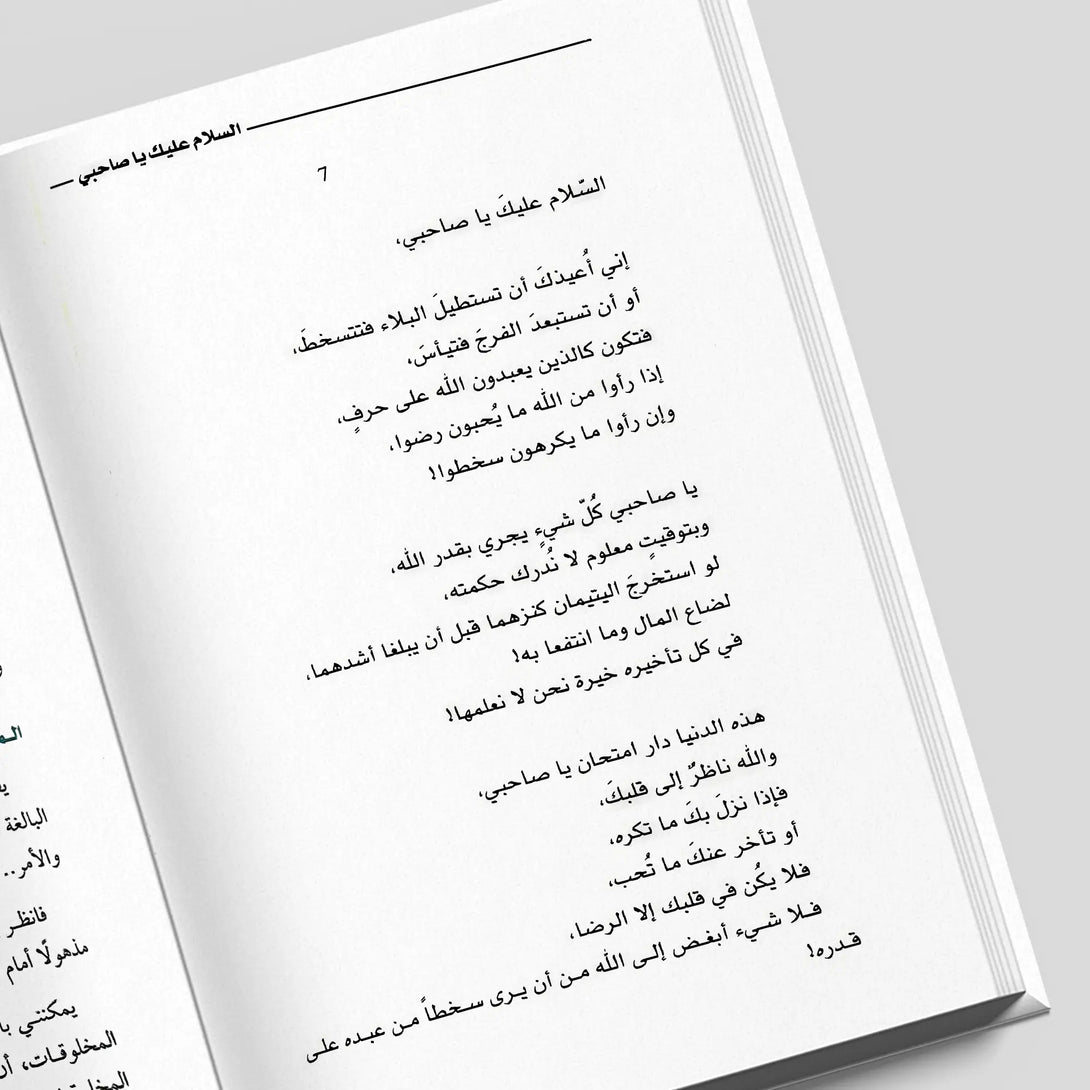 السلام عليك يا صاحبي
7
السّلام عليكَ يا صاحبي،
إني أُعيذكَ أن تستطيلَ البلاء فتتسخطَ،
أو أن تستبعدَ الفرجَ فتيأسَ،
فتكون كالذين يعبدون الله على حرفٍ،
إذا رأوا من الله ما يُحبون رضوا،
وإن رأوا ما يكرهون سخطوا!
يا صاحبي كُلّ شيءٍ يجري بقدر الله،
وبتوقيتٍ معلوم لا نُدرك حكمته،
لو استخرجَ اليتيمان كنزهما قبل أن يبلغا أشدهما،
لضاع المال وما انتفعا به!
في كل تأخيره خيرة نحن لا نعلمها!
هذه الدنيا دار امتحان يا صاحبي،
والله ناظرٌ إلى قلبكَ،
فإذا نزلَ بكَ ما تكره،
أو تأخر عنكَ ما تُحب،
فلا يكُن في قلبك إلا الرضا،
فلا شيء أبغض إلى الله من أن يرى سخطاً من عبده على
قدره!
البالغة
والأمر..
فانظر
مذهولًا أمام
يمكنني
المخلوقات،